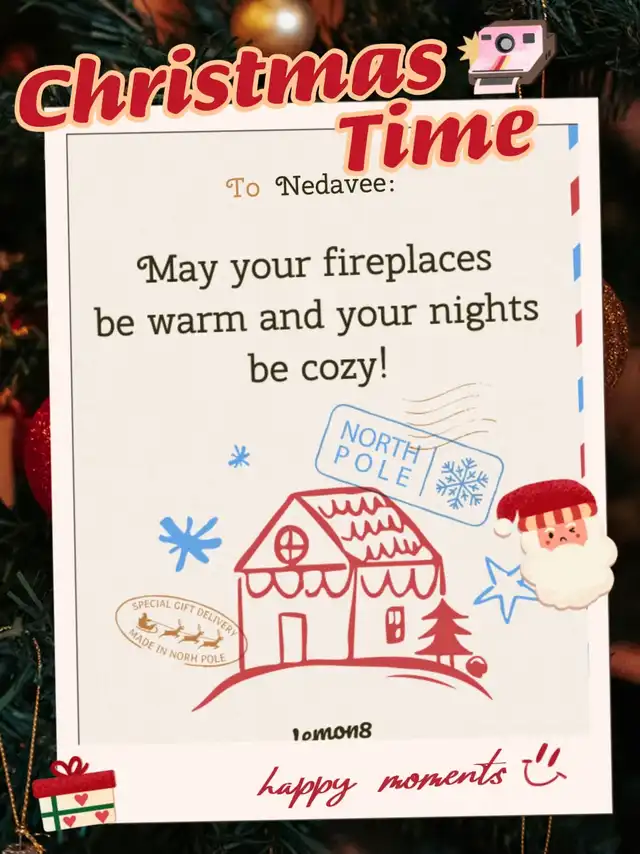 Christmas
Time
To Nedavee:
May your fireplaces
be warm and your nights
be cozy!
NORTH
POLE
SPECIAL GIFT DELIVERY
MADE IN NORH POLE
Lemon8
happy moments